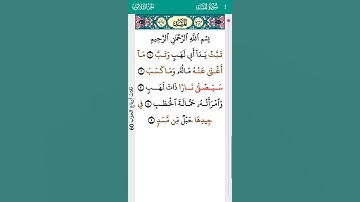 سُورَةُ المَسَدِ
بِسْمِ ٱللَّهِ ٱلرَّحْمَٰنِ ٱلرَّحِيمِ
تَبَّتْ يَدَآ أَبِى لَهَبٍ وَتَبَّ ١ مَآ
أَغْنَىٰ عَنْهُ مَالُهُۥ وَمَا كَسَبَ ٢
سَيَصْلَىٰ نَارًا ذَاتَ لَهَبٍ ٣
وَٱمْرَأَتُهُۥ حَمَّالَةَ ٱلْحَطَبِ ٤ فِى
جِيدِهَا حَبْلٌ مِّن مَّسَدٍۭ ٥